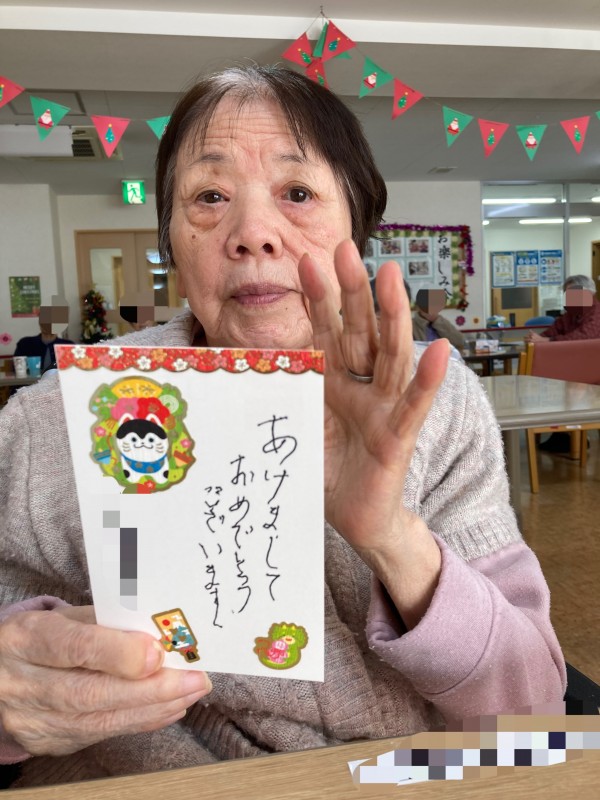 あけまして
おめでとう
ございます。
お楽しみ